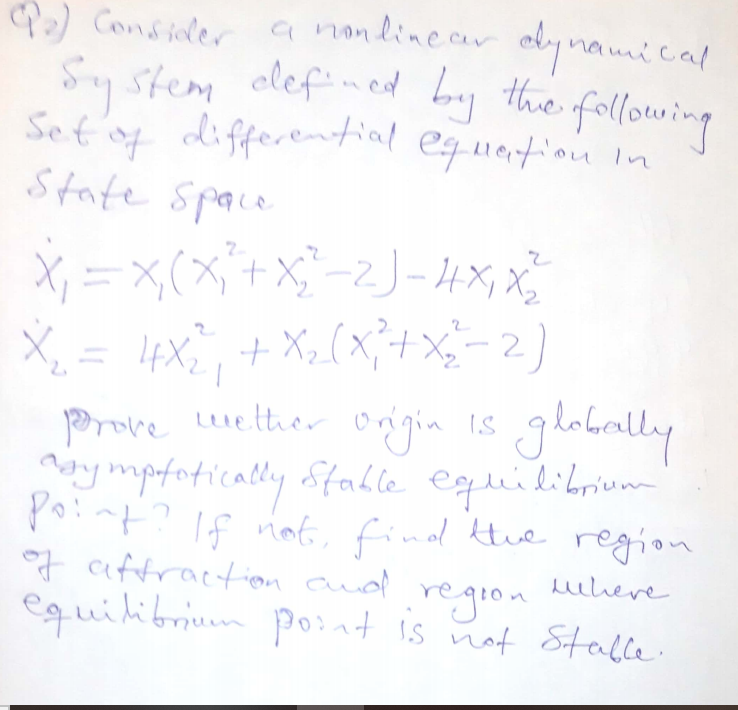 Q2) Consider a nonlinear dynamical
System defined by the following
Set of differential equation in
State space
Ẋ₁ = X₁(X₁² + X₂² - 2) - 4X₁X₂²
Ẋ₂ = 4X₂²₁ + X₂(X₁² + X₂² - 2)
prove wether origin is globally
asymptotically stable equilibrium
point? If not, find the region
of attraction and region where
equilibrium point is not stable.